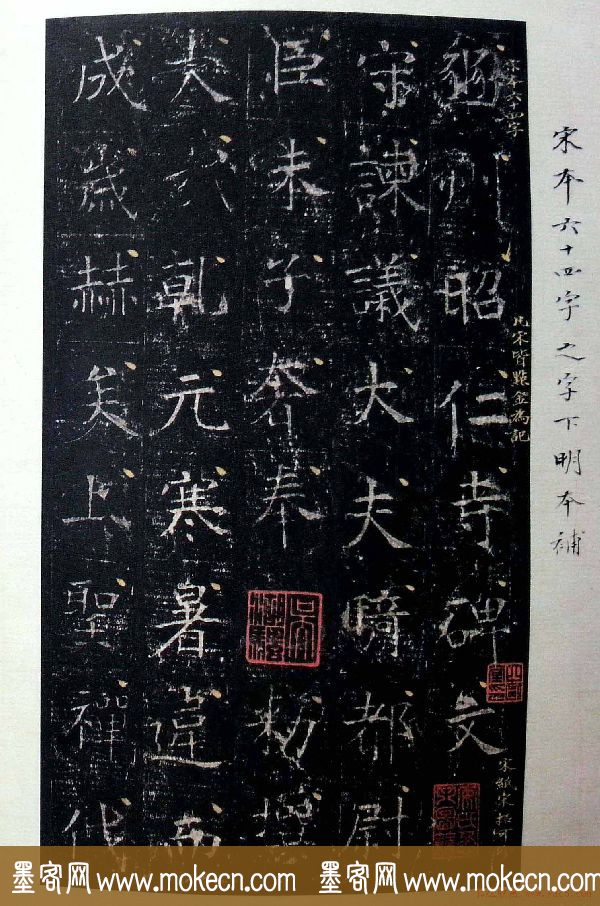 宋本六十四字之字下明本補
宋本六十四字
凡宋皆點金為記
豳州昭仁寺碑文
宋紙宋搨可
守諫議大夫騎都尉
臣朱子奢奉
勑撰
大哉乾元寒暑違而
成歲赫矣上聖禪代
墨客网 www.mokecn.com 墨客网 www.mokecn.com